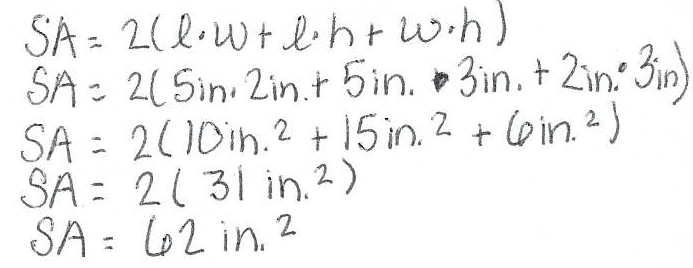 SA = 2(l·w + l·h + w·h)
SA = 2(5in. 2in. + 5in. • 3in. + 2in. • 3in)
SA = 2(10in.² + 15in.² + 6in.²)
SA = 2(31 in.²)
SA = 62 in.²